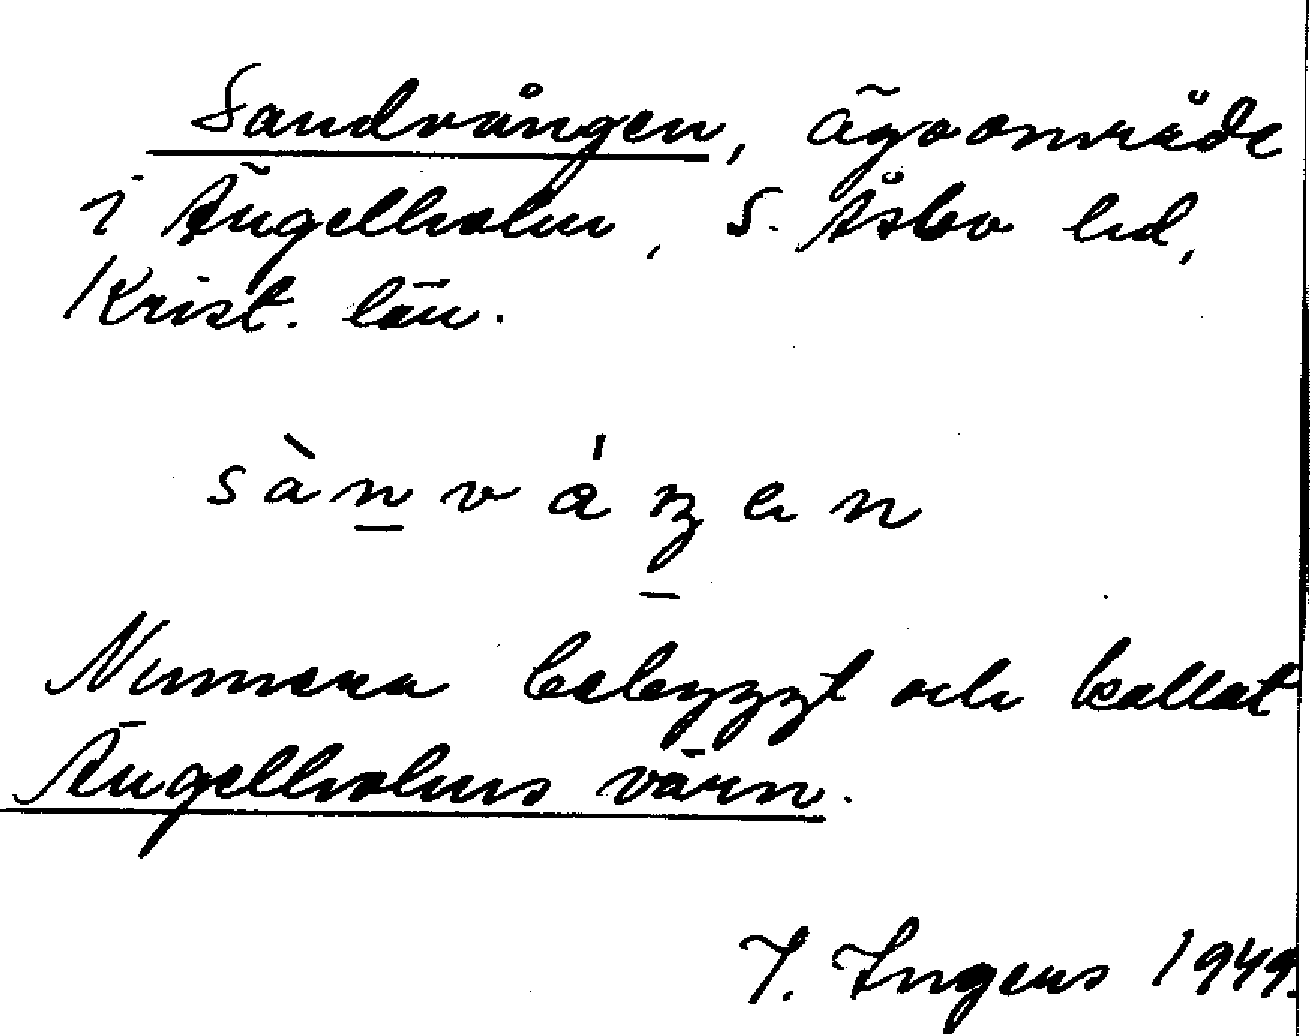 Sandvången, ägoområde
i Ängelholm, S. Åsbo hd,
Krist. län.
sànváŋen
Numera bebyggt och kallat
Ängelholms värn.
I. Ingers 1949.